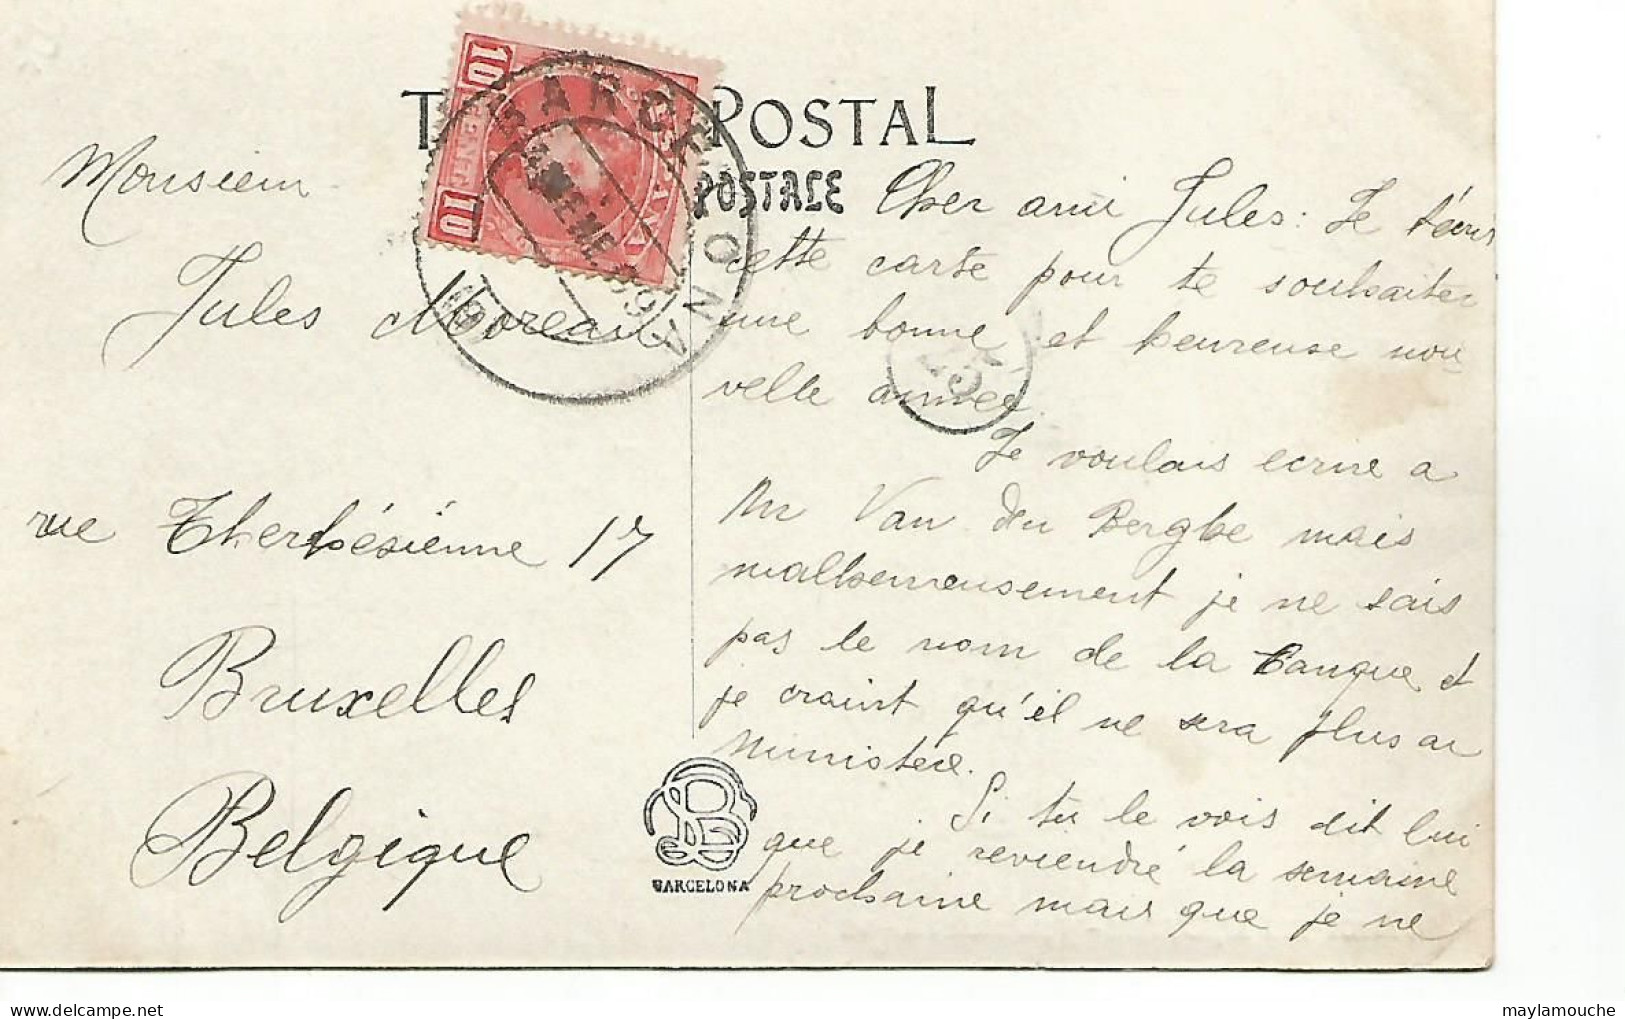 POSTAL
POSTALE
10
CENTS
10
BARCELONA
Monsieur
Jules Moreau
rue Therhésiénne 17
Bruxelles
Belgique
BARCELONA
Cher ami Jules: Je t'écris
cette carte pour te souhaiter
une bonne et heureuse nou
velle année.
Je voulais ecrire a
Mr Van den Berghe mais
malheureusement je ne sais
pas le nom de la banque et
je craint qu'il ne sera plus au
Ministere.
Si tu le vois dit lui
que je reviendré la semaine
prochaine mais que je ne
maylamouche